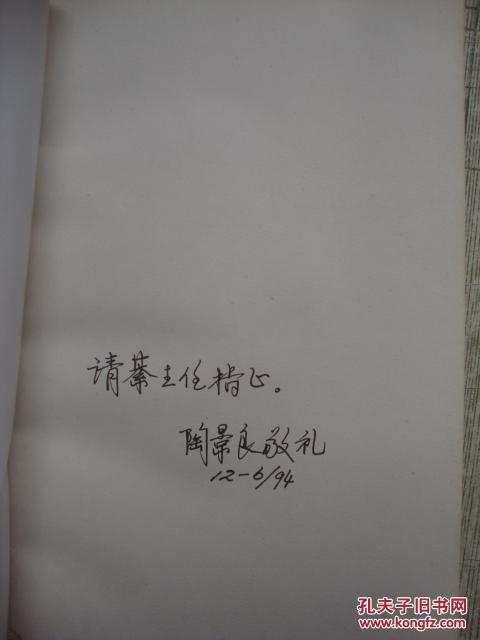 请綦主任指正。
陶景良敬礼
12-6/94
孔夫子旧书网
www.kongfz.com